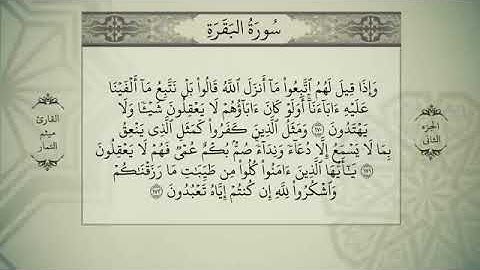 سُورَةُ البَقَرَةِ
وَإِذَا قِيلَ لَهُمُ ٱتَّبِعُوا۟ مَآ أَنزَلَ ٱللَّهُ قَالُوا۟ بَلْ نَتَّبِعُ مَآ أَلْفَيْنَا
عَلَيْهِ ءَابَآءَنَآ أَوَلَوْ كَانَ ءَابَآؤُهُمْ لَا يَعْقِلُونَ شَيْـًٔا وَلَا
يَهْتَدُونَ ١٧٠ وَمَثَلُ ٱلَّذِينَ كَفَرُوا۟ كَمَثَلِ ٱلَّذِى يَنْعِقُ
بِمَا لَا يَسْمَعُ إِلَّا دُعَآءً وَنِدَآءً صُمٌّۢ بُكْمٌ عُمْىٌ فَهُمْ لَا يَعْقِلُونَ
١٧١ يَـٰٓأَيُّهَا ٱلَّذِينَ ءَامَنُوا۟ كُلُوا۟ مِن طَيِّبَـٰتِ مَا رَزَقْنَـٰكُمْ
وَٱشْكُرُوا۟ لِلَّهِ إِن كُنتُمْ إِيَّاهُ تَعْبُدُونَ ١٧٢
الجزء
الثاني
القارئ
ميثم
التمار